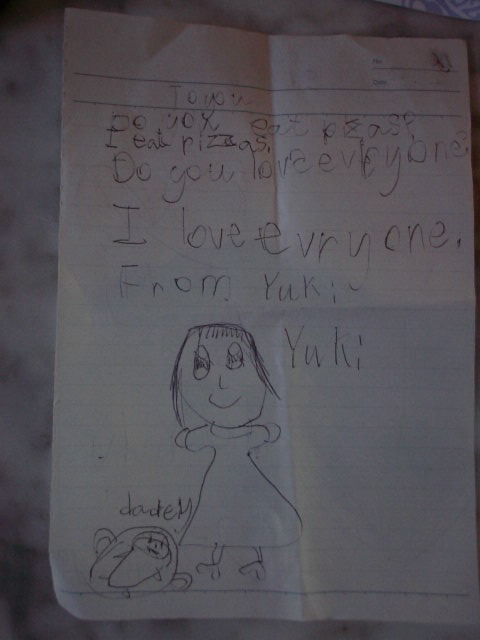 No.
Date
To you
Do you eat pizzas?
I eat pizzas.
Do you love evryone?
I love evryone.
From Yuki
Yuki